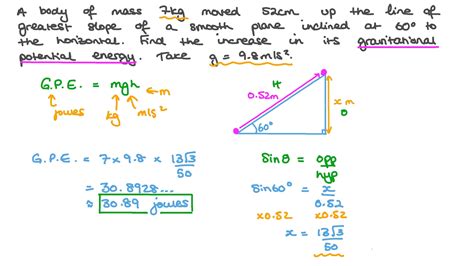 A body of mass 7kg moved 52cm up the line of
greatest slope of a smooth plane inclined at 60° to
the horizontal. Find the increase in its gravitational
potential energy. Take g = 9.8m/s².
G.P.E. = mgh ← m
joules kg m/s²
H
0.52m
x m
O
60°
G.P.E. = 7 × 9.8 × 13√3/50
= 30.8928...
≈ 30.89 joules
Sinθ = opp/hyp
Sin60° = x/0.52
×0.52 ×0.52
x = 13√3/50